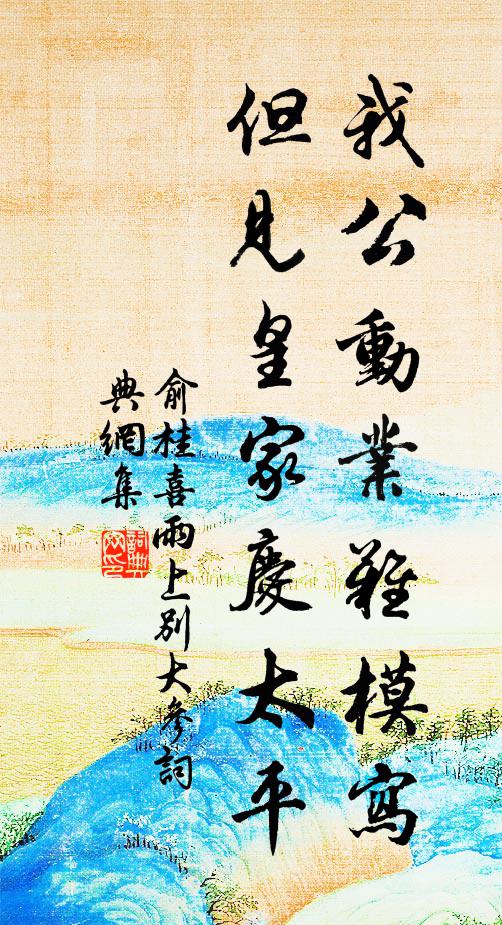 我公動業難模寫
但見皇家慶太平
俞桂喜雨上别大參詞
典網集
詞典
网印